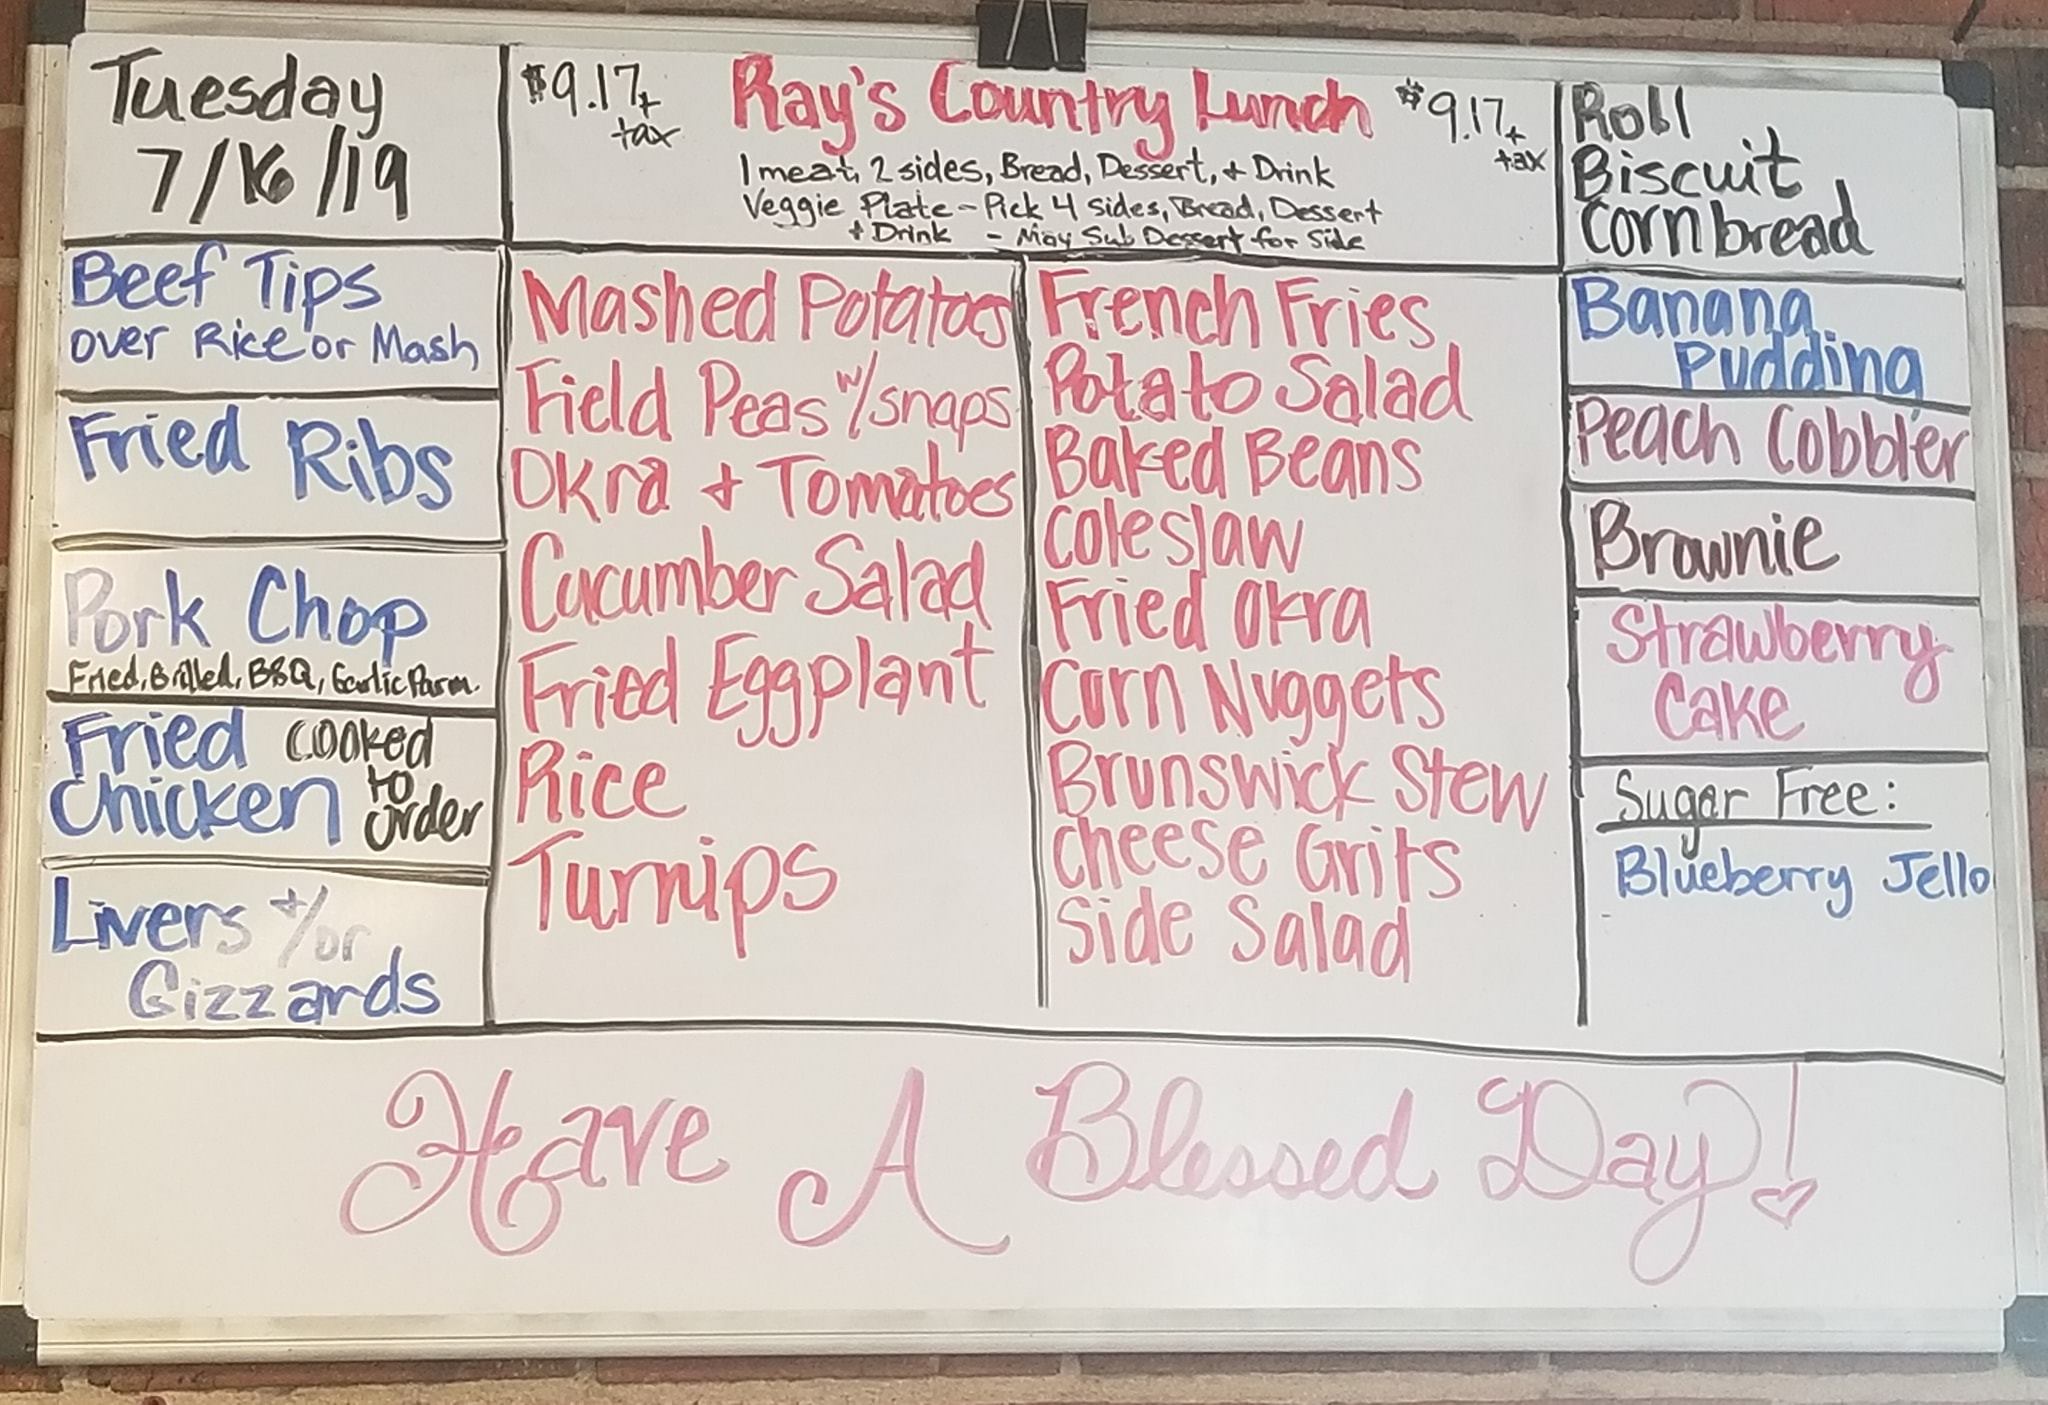 Tuesday
7/16/19
$9.17+
tax
Ray's Country Lunch
$9.17+
tax
1 meat, 2 sides, Bread, Dessert, + Drink
Veggie Plate - Pick 4 Sides, Bread, Dessert
+ Drink - May Sub Dessert for Side
Roll
Biscuit
Cornbread
Beef Tips
over Rice or Mash
Fried Ribs
Pork Chop
Fried, Grilled, BBQ, Garlic Parm.
Fried cooked
Chicken to
order
Livers +/or
Gizzards
Mashed Potatoes
Field Peas w/snaps
Okra + Tomatoes
Cucumber Salad
Fried Eggplant
Rice
Turnips
French Fries
Potato Salad
Baked Beans
Coleslaw
Fried Okra
Corn Nuggets
Brunswick Stew
Cheese Grits
Side Salad
Banana
Pudding
Peach Cobbler
Brownie
Strawberry
Cake
Sugar Free:
Blueberry Jello
Have A Blessed Day!